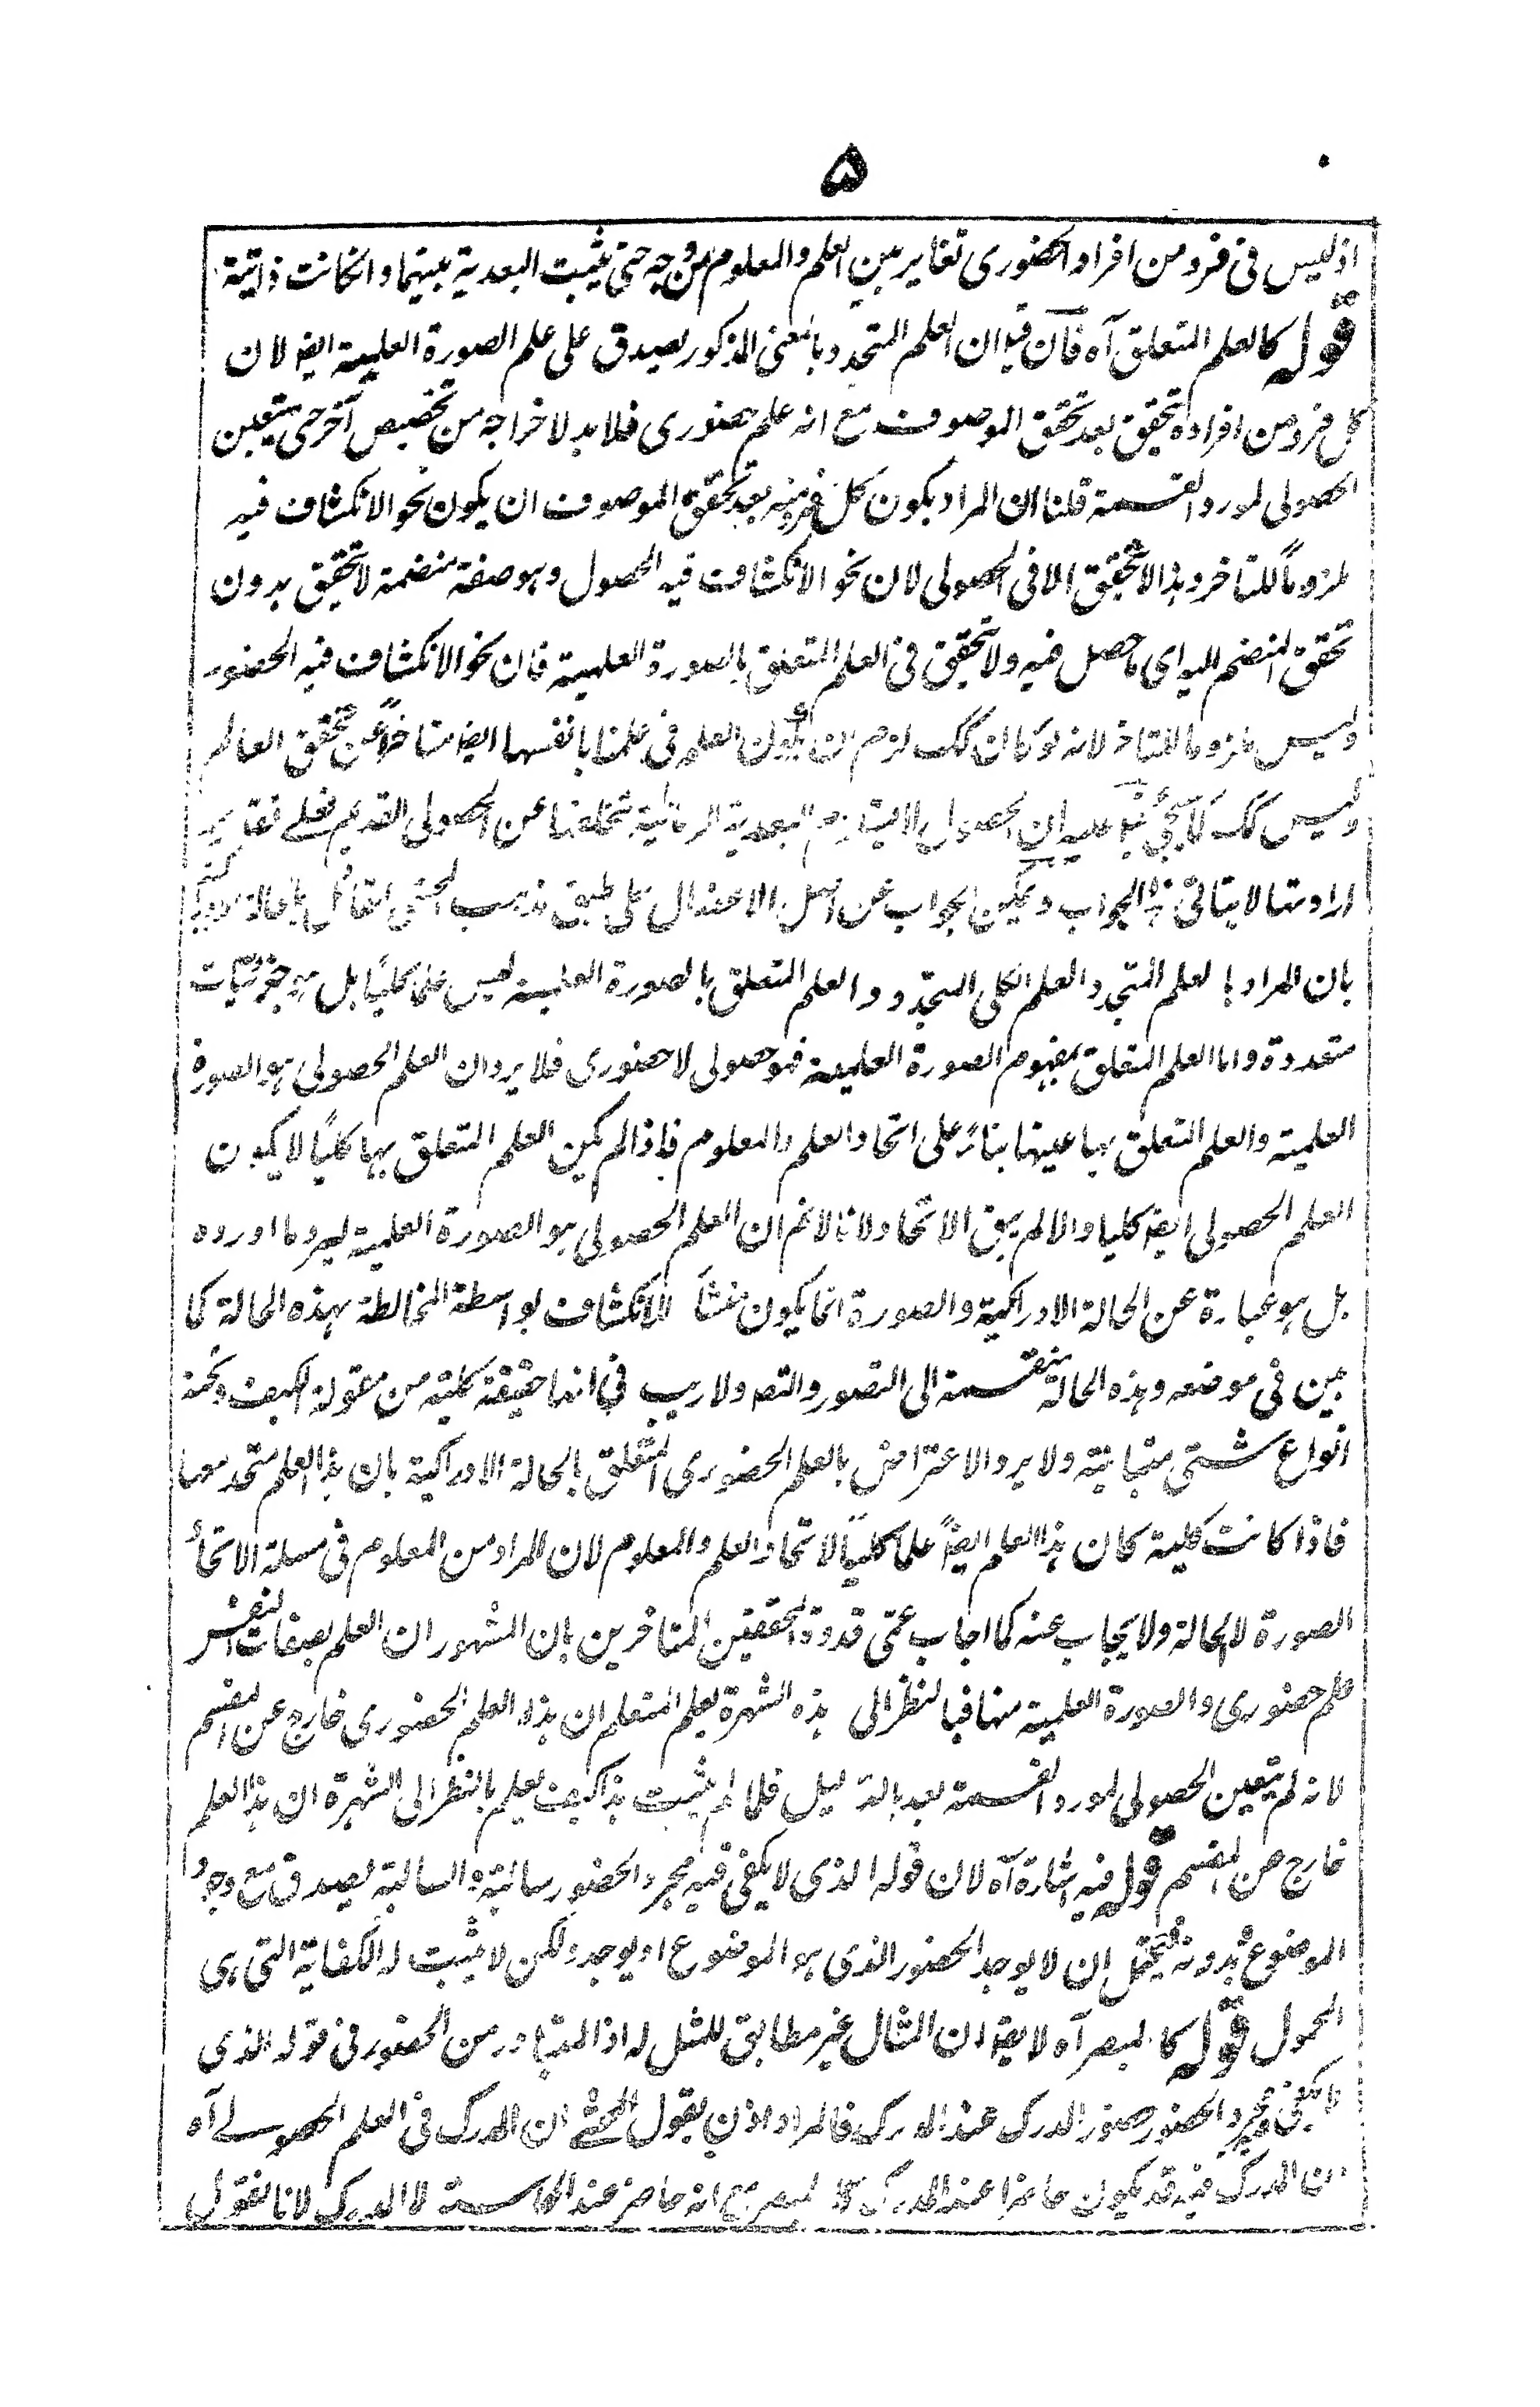 ۵
اذ ليس فى فرد من افراد الحضورى تغاير بين العلم والمعلوم من وجه حتى يثبت البعدية بينهما وانكانت ذاتية
قوله كالعلم المتعلق آه فان قيل ان العلم المتجدد بالمعنى المذكور يصدق على علم الصورة العلمية ايضا لان
كل فرد من افراده تحقق بعد تحقق الموصوف مع انه علم حضورى فلا بد لاخراجه من تخصيص آخر حتى يتعين
الحصولى لمورد القسمة قلنا ان المراد بكون كل فرد منه بعد تحقق الموصوف ان يكون نحو الانكشاف فيه
ملزوماً للتاخر وهذا لا يتحقق الا فى الحصولى لان نحو الانكشاف فيه الحصول وهو صفة منضمة لا تحقق بدون
تحقق المنضم اليه اى ما حصل فيه ولا يتحقق فى العلم المتعلق بالصورة العلمية فان نحو الانكشاف فيه الحضور
وليس ملزوما للتاخر لانه لو كان كك لزم ان يكون العلم فى علمنا بانفسها ايضا متاخراً عن تحقق العالم
وليس كك عليه ان الحصول لا البعدية الزمانية لتخلفها عن الحصولى القديم فعلى تقدير
ارادتها لا يتاتى هذا الجواب ويمكن الجواب عن اصل الاعضال على طبق مذهب المحشى القائل
بان المراد بالعلم المتجدد العلم الكلى المتجدد والعلم المتعلق بالصورة العلمية ليس علما كليًا بل هو جزئيات
متعددة واما العلم المتعلق بمفهوم الصورة العلمية فهو حصولى لا حضورى فلا يرد ان العلم الحصولى هو الصورة
العلمية والعلم المتعلق بها عينها بناءً على اتحاد العلم والمعلوم فاذا لم يكن العلم المتعلق بها كليًا لا يكون
العلم الحصولى ايضا كليا والا لم يبق الاتحاد لانا لا نم ان العلم الحصولى هو الصورة العلمية ليرد ما اورده
بل هو عبارة عن الحالة الادراكية والصورة انما يكون منشأ للانكشاف بواسطة المخالطة بهذه الحالة كما
بين فى موضعه وهذه الحالة منقسمة الى التصور والتصـ ولا ريب فى انها حقيقة كلية من مقولة الكيف وتحته
انواع شتى متبائنة ولا يرد الاعتراض بالعلم الحضورى المتعلق بالحالة الادراكية بان هذا العلم متحد معها
فاذا كانت كلية كان هذا العلم ايضاً علما كلياً لاتحاد العلم والمعلوم لان المراد من المعلوم فى مسئلة الاتحاد
الصورة لا الحالة ولا يجاب عنه كما اجاب عمى قدوة المحققين المتاخرين بان المشهور ان العلم بصفات النفس
علم حضورى والصورة العلمية منها فبالنظر الى هذه الشهرة يعلم المتعلم ان هذا العلم الحضورى خارج عن المقسم
لانه لم يتعين الحصولى لمورد القسمة بعد بالدليل فلما لم يثبت هذا كيف يعلم بالنظر الى الشهرة ان هذا العلم
خارج عن المقسم قوله فيه اشارة آه لان قوله الذى لا يكفى فيه مجرد الحضور سالبة والسالبة يصدق مع وجود
الموضوع وبدونه فيحتمل ان لا يوجد الحضور الذى هو الموضوع او يوجد ولكن لا يثبت له الكفاية التى هى
المحمول قوله كالمبصر آه لا يقا ان المثال غير مطابق للمثل له اذ المتبادر من الحضور فى قوله الذى
لا يكفى فيه مجرد الحضور حضور المدرك عند المدرك فالمراد اذن بقول المحشى ان المدرك فى العلم الحصولى آه
ان المدرك فيه قد يكون حاضرا عند المدرك كالمبصر مع انه حاضر عند الحاسة لا المدرك لانا نقول